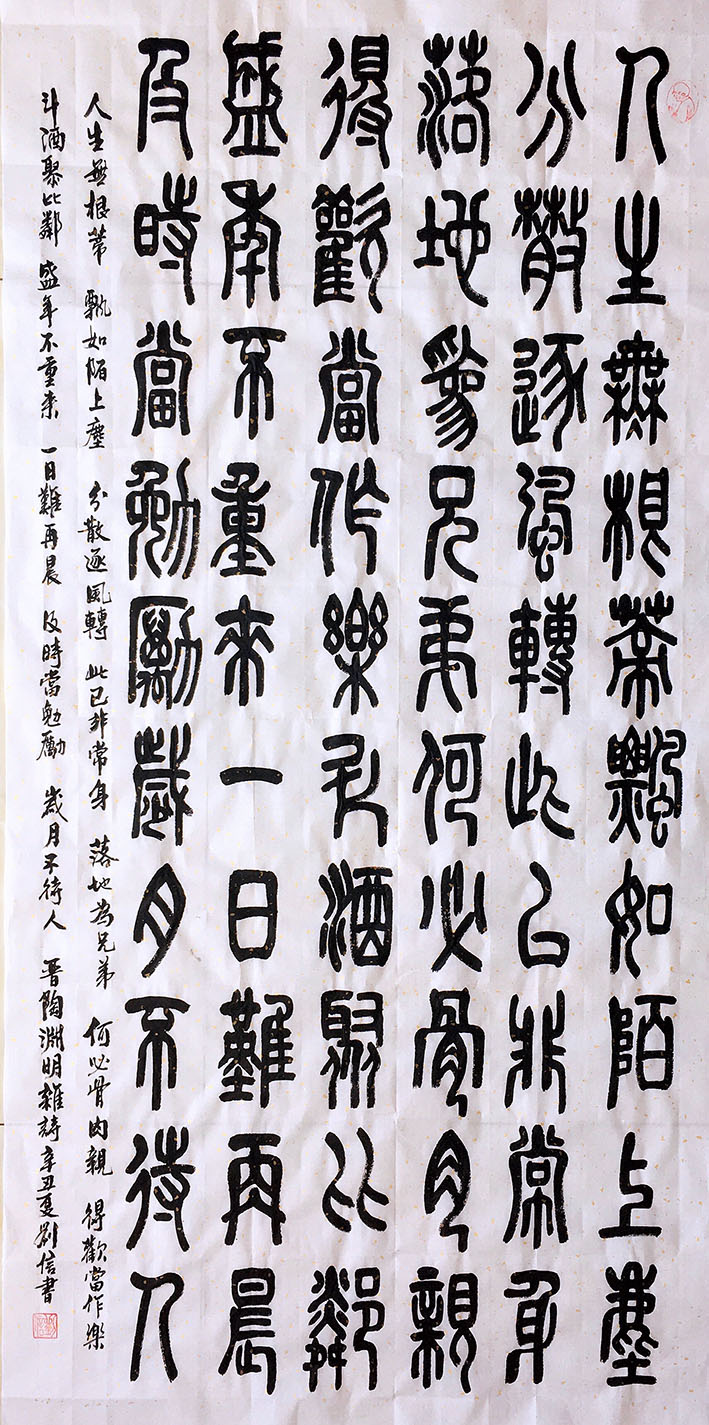 人生無根蒂飄如陌上塵
分散逐風轉此已非常身
落地為兄弟何必骨肉親
得歡當作樂斗酒聚比鄰
盛年不重来一日難再晨
及時當勉勵歲月不待人
人生無根蒂 飄如陌上塵 分散逐風轉 此已非常身 落地為兄弟 何必骨肉親 得歡當作樂
斗酒聚比鄰 盛年不重来 一日難再晨 及時當勉勵 歲月不待人 晋陶淵明雜詩辛丑夏劉信書